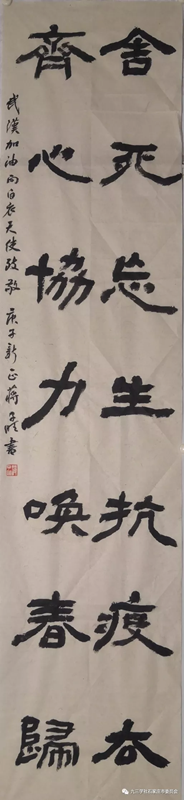 舍死忘生抗疫去
齊心協力唤春歸
武漢加油向白衣天使致敬 庚子新正蔣
書